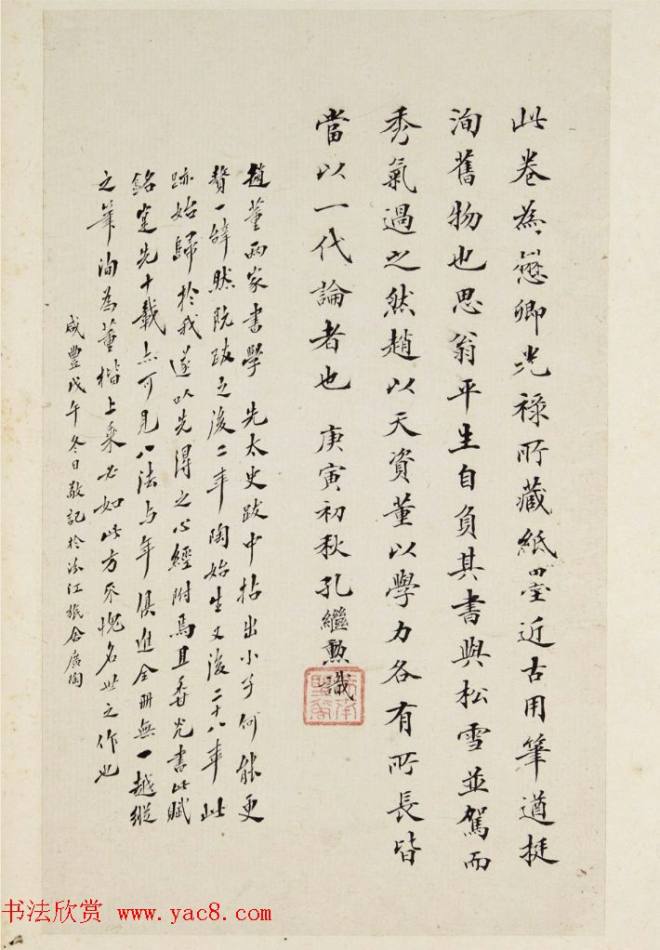 此卷為懋卿光祿所藏紙墨近古用筆遒挺
洵舊物也思翁平生自負其書與松雪並駕而
秀氣過之然趙以天資董以學力各有所長皆
當以一代論者也 庚寅初秋孔繼勳識
趙董兩家書學 先太史跋中拈出小子何能更
贅一辭然既跋之後二年陶始生又後二十八年此
跡始歸於我遂以先得之心經附焉且香光書此賦
銘室先十載亦可見八法與年俱進全冊無一越縱
之筆洵為董楷上乘必如此方不愧名世之作也
咸豐戊午冬日敬記於江旅舍廣陶
书法欣赏 www.yac8.com